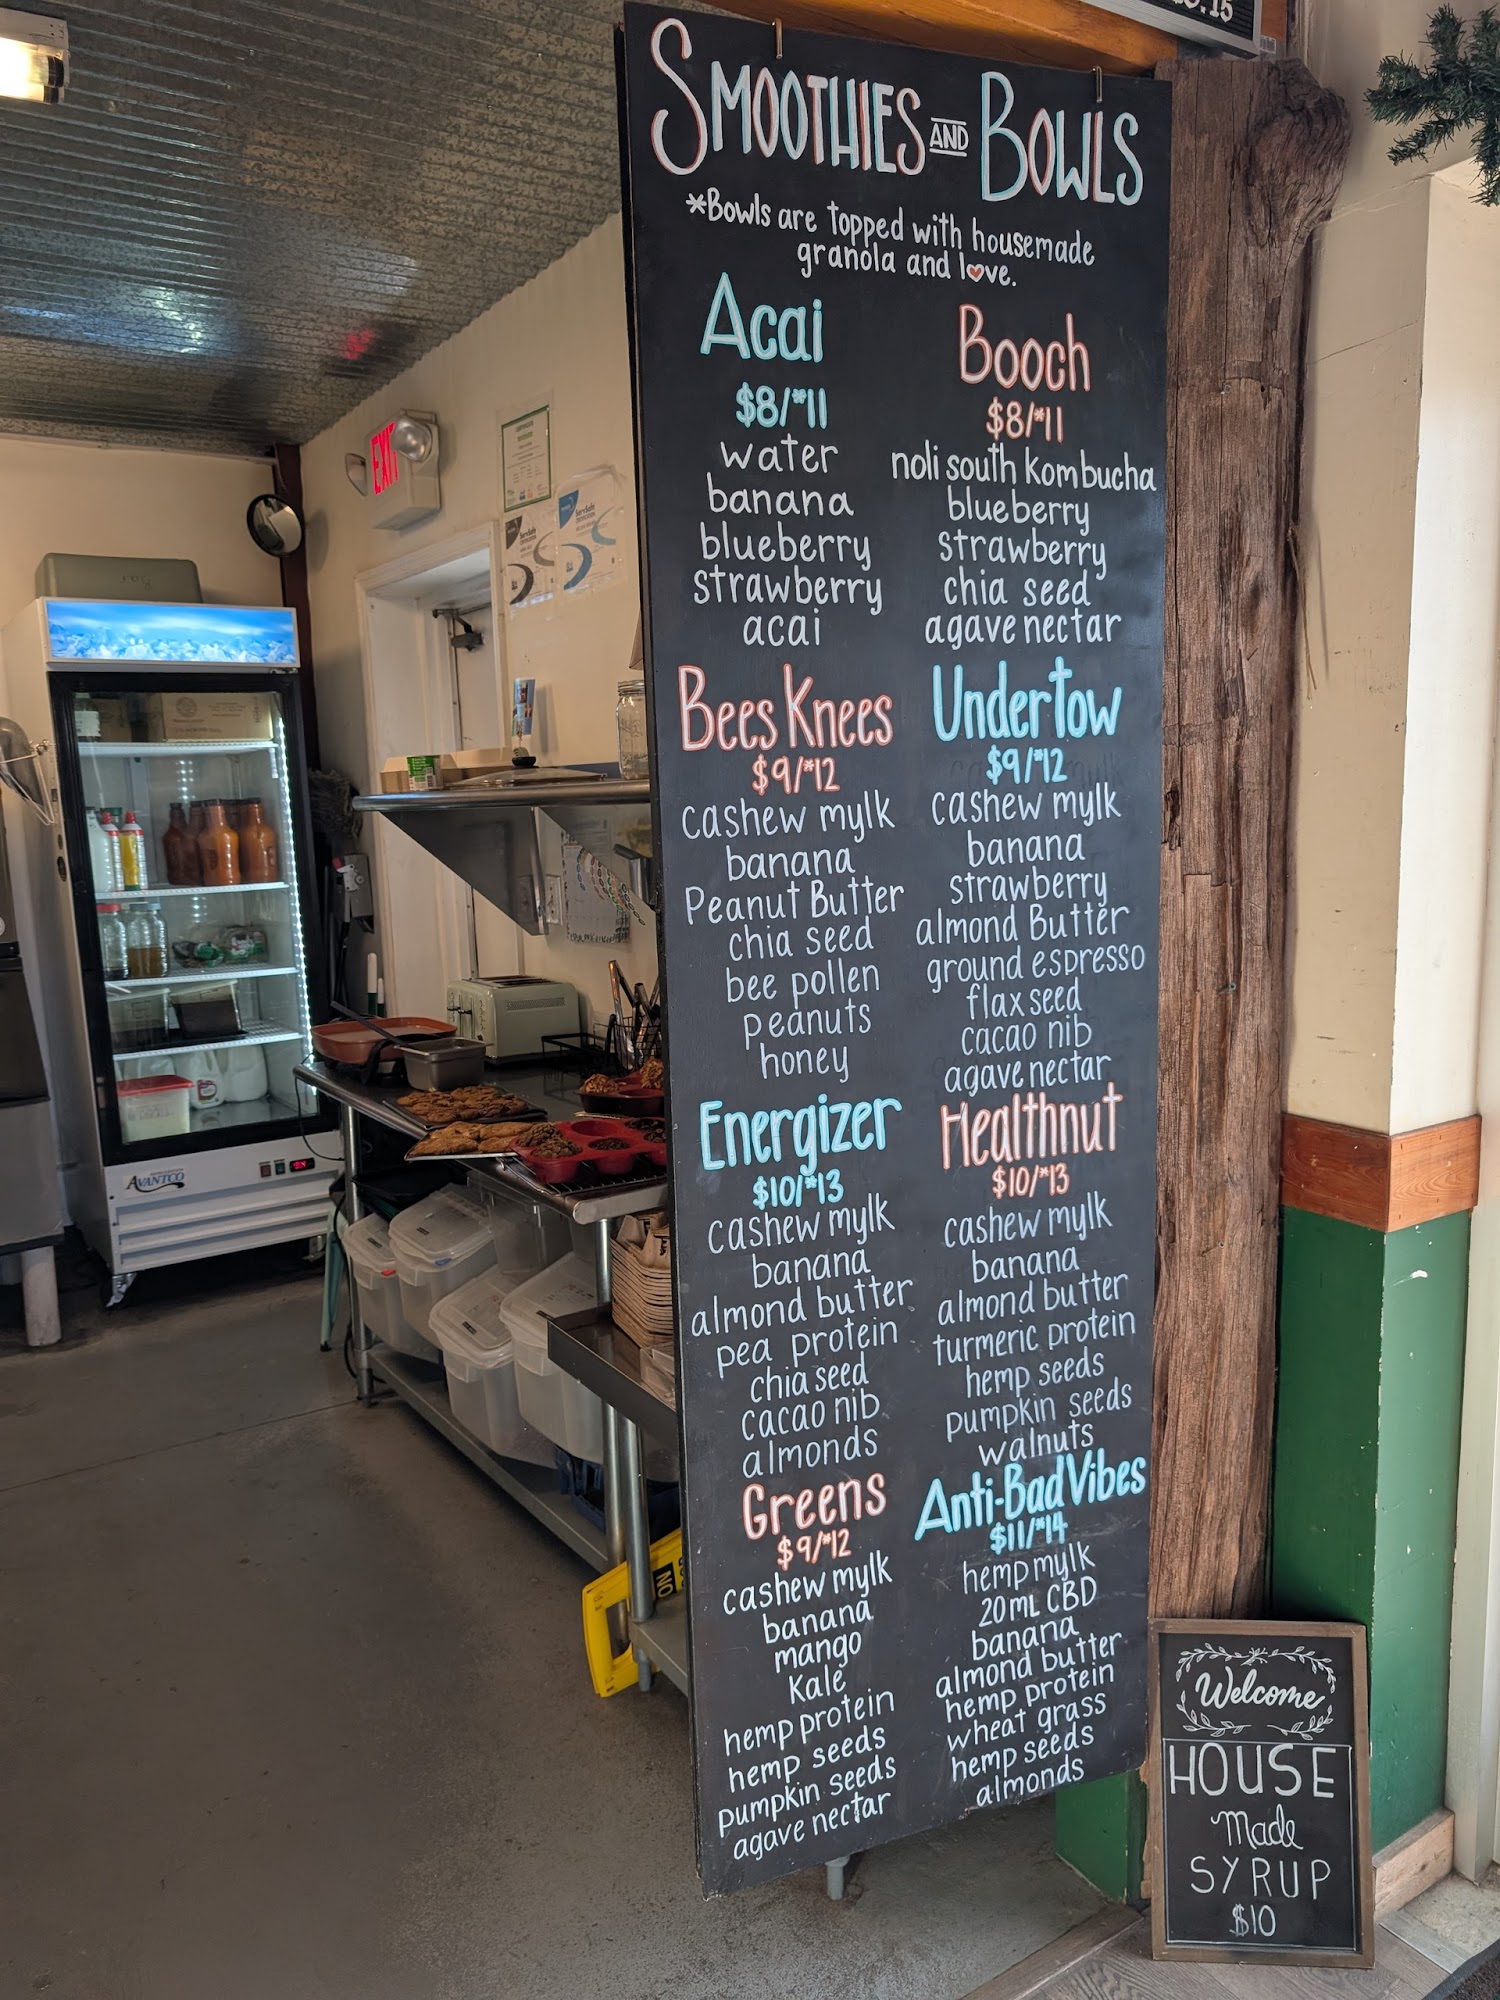 SMOOTHIES AND BOWLS
*Bowls are topped with housemade
granola and love.
Acai
$8/*11
water
banana
blueberry
strawberry
acai
Booch
$8/*11
noli south kombucha
blueberry
strawberry
chia seed
agave nectar
Bees Knees
$9/*12
cashew mylk
banana
Peanut Butter
chia seed
bee pollen
peanuts
honey
Undertow
$9/*12
cashew mylk
banana
strawberry
almond Butter
ground espresso
flax seed
cacao nib
agave nectar
Energizer
$10/*13
cashew mylk
banana
almond butter
pea protein
chia seed
cacao nib
almonds
Healthnut
$10/*13
cashew mylk
banana
almond butter
turmeric protein
hemp seeds
pumpkin seeds
walnuts
Greens
$9/*12
cashew mylk
banana
mango
Kale
hemp protein
hemp seeds
pumpkin seeds
agave nectar
Anti-Bad Vibes
$11/*14
hemp mylk
20ML CBD
banana
almond butter
hemp protein
wheat grass
hemp seeds
almonds
Welcome
HOUSE
Made
SYRUP
$10
EXIT
ServSafe
CERTIFICATION
ServSafe
CERTIFICATION
AVANTCO
.15